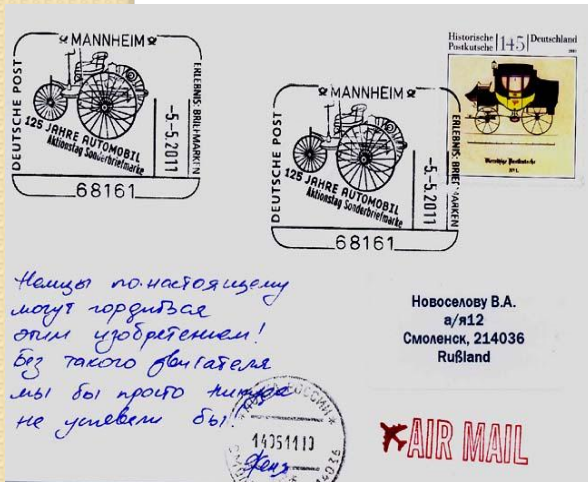 MANNHEIM
DEUTSCHE POST
ERLEBNIS: BRIEFMARKEN
125 JAHRE AUTOMOBIL
Aktionstag Sonderbriefmarke
-5.-5.2011
68161
MANNHEIM
DEUTSCHE POST
ERLEBNIS: BRIEFMARKEN
125 JAHRE AUTOMOBIL
Aktionstag Sonderbriefmarke
-5.-5.2011
68161
Historische
Postkutsche 145 Deutschland
Немцы по-настоящему
могут гордиться
этим изобретением!
Без такого двигателя
мы бы просто никуда
не успевали бы!
Новоселову В.А.
а/я12
Смоленск, 214036
Rußland
РОССИИ
214036
AIR MAIL